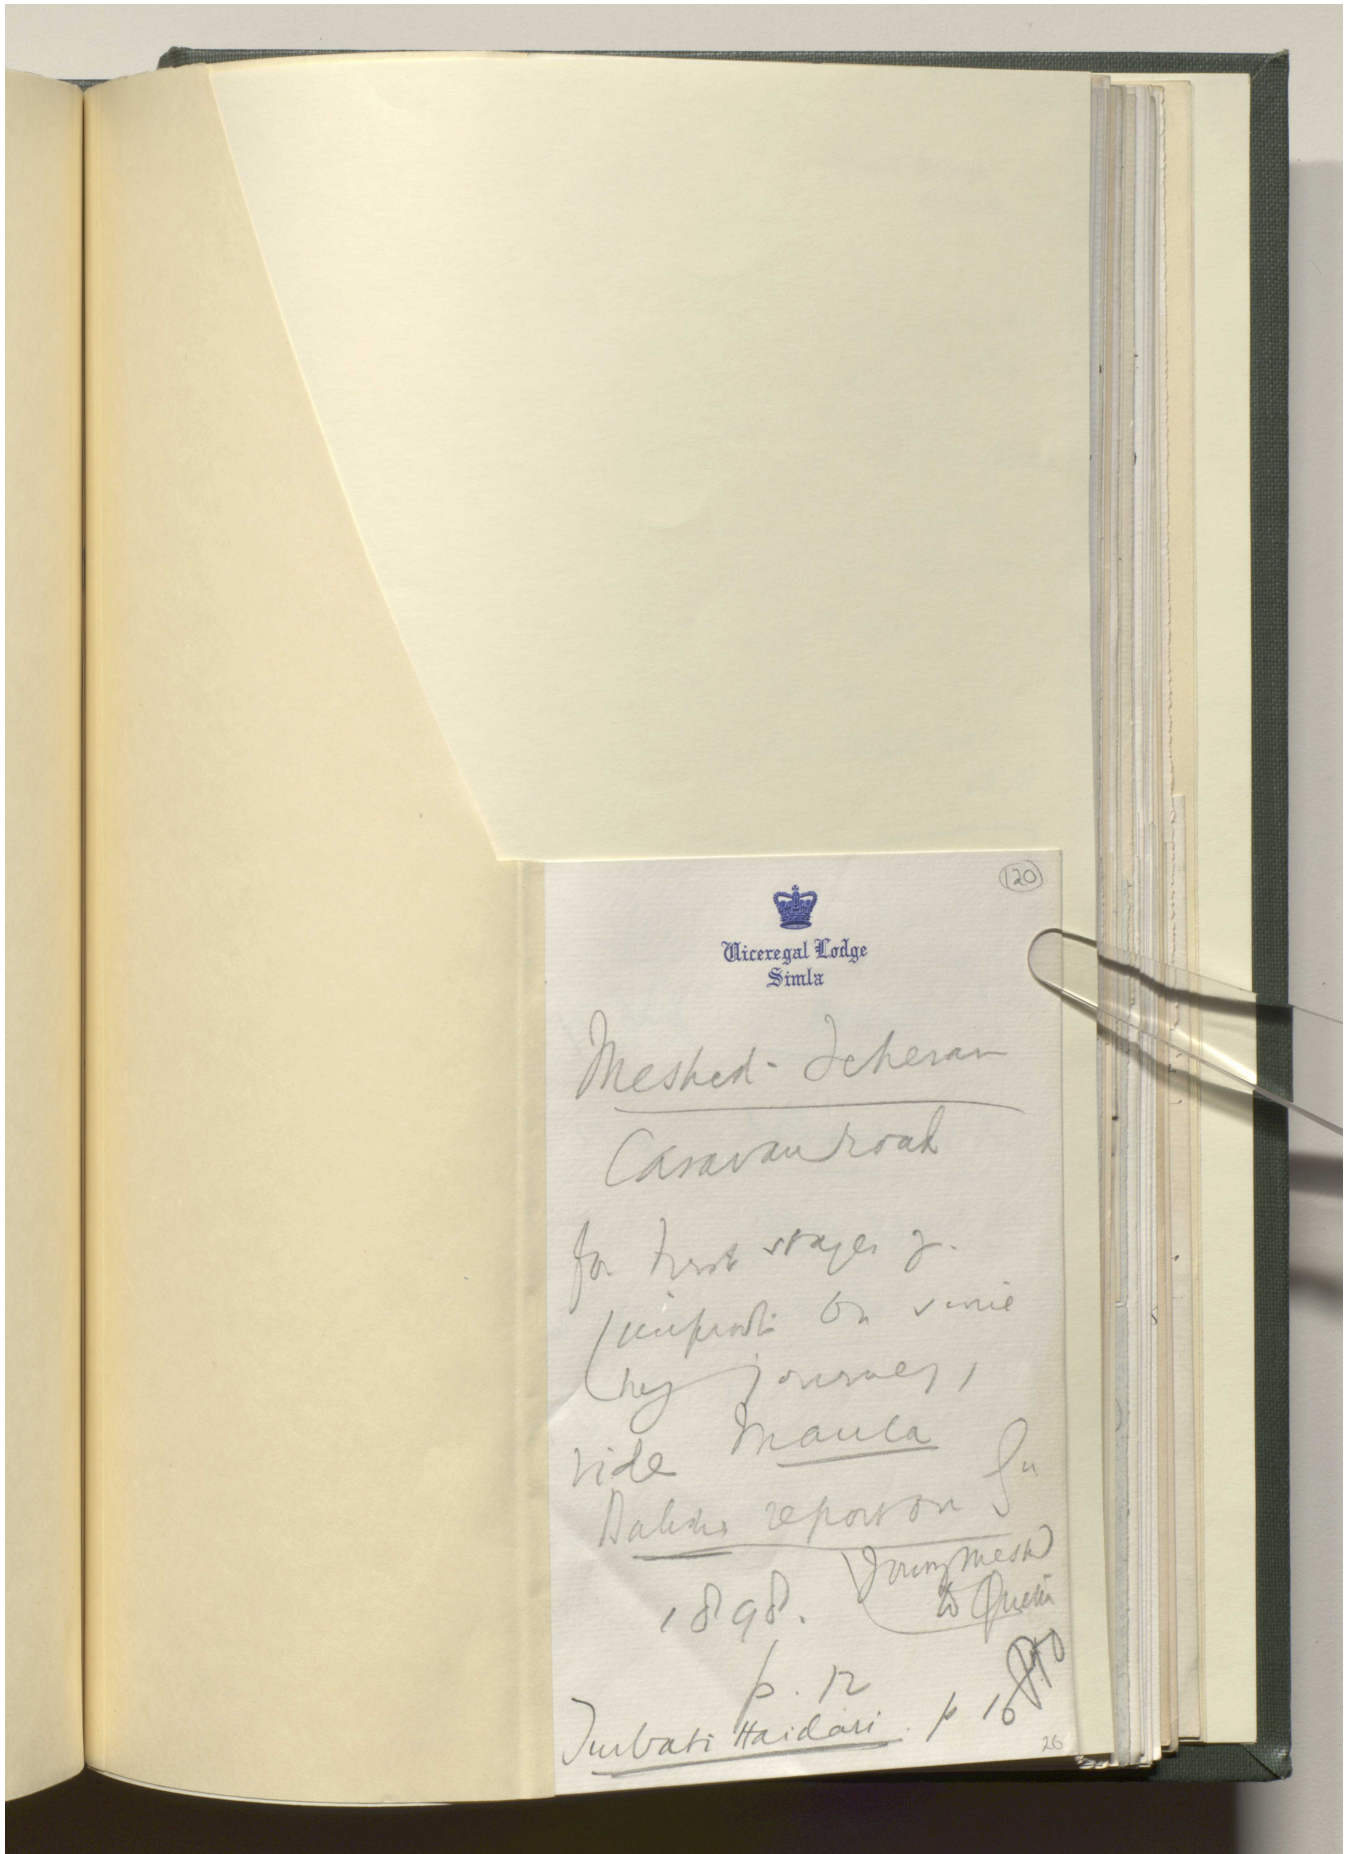 120
Viceregal Lodge
Simla
Meshed - Teheran
Caravan road
for first stages of
on
my journey,
vide Maula
Bakhsh's report on
Journey Mesh
to Quetta
1898.
p. 12
PTO
Turbati Haidari. p 16
26